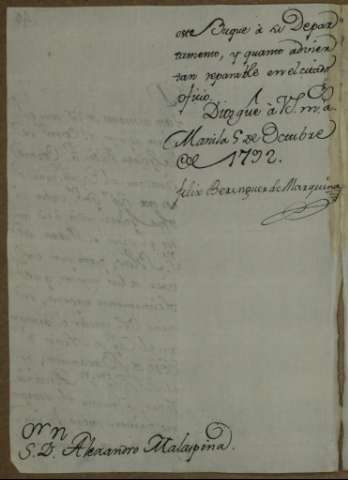 este Buque à su Depar
tamento, y quanto advier
tan reparable en el citado
oficio.
Dios gue à V.S. m. a.
Manila 5 de Octubre
de 1792.
Felix Berenguer de Marquina
S. D. Alexandro Malaspina.